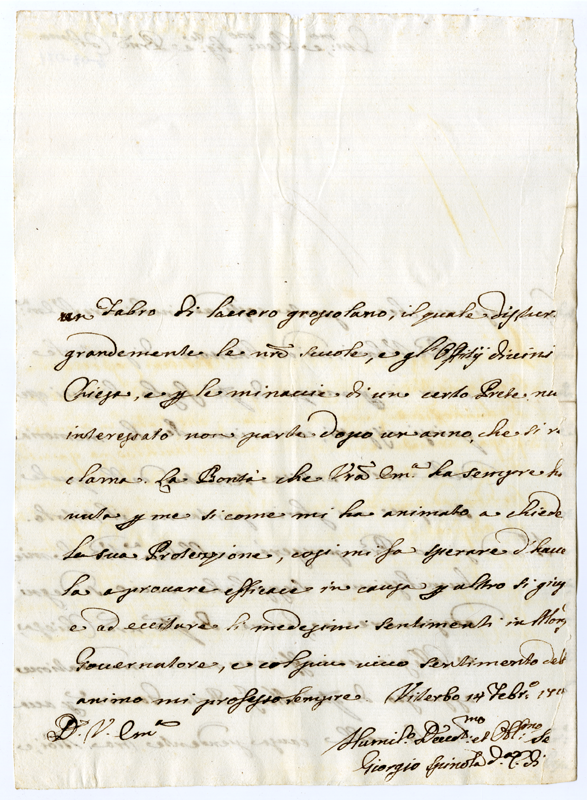 un Fabro di lavoro grossolano, il quale distur
grandemente le nrẽ scuole, e gl' Offitij divini
Chiesa, e p le minaccie di un certo Prete nu
interessato non parte dopo un anno, che si re
clama. La Bontà che Vrã Em.ª ha sempre h
vuta p me si come mi ha animato a chiede
la sua Protenzione, cosi mi fa sperare d'have
la a provare efficace in causa p altro si gius
e ad eccitare li medesimi sentimenti in Mon
Governatore, e col più vivo sentimento dell
animo mi professo sempre. Viterbo 14 Febr.º 17
D. V. Em.ª
Humil.º Devot.mo et Obl.mo Se
Giorgio Spinola d. C. di